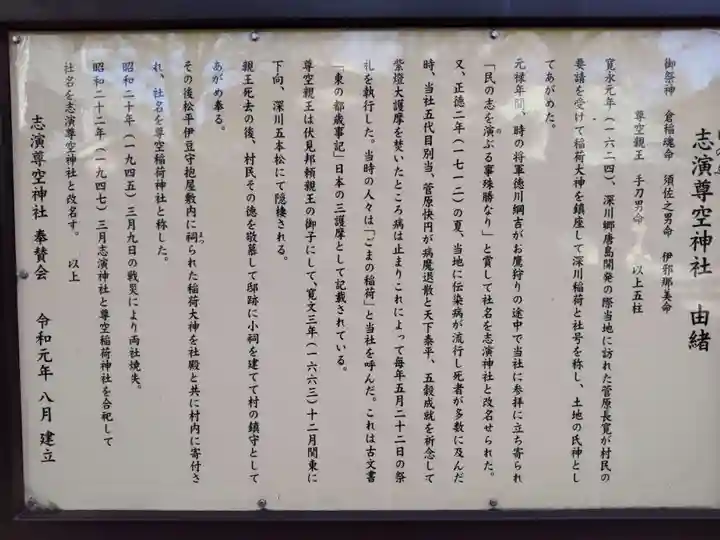 志演尊空神社 由緒
御祭神 倉稲魂命 須佐之男命 伊邪那美命
尊空親王 手刀男命 以上五柱
寛永元年(一六二四)、深川郷唐島開発の際当地に訪れた菅原長寛が村民の
要請を受けて稲荷大神を鎮座して深川稲荷と社号を称し、土地の氏神とし
てあがめた。
元禄年間、時の将軍徳川綱吉がお鷹狩りの途中で当社に参拝に立ち寄られ
「民の志を演ぶる事殊勝なり」と賞して社名を志演神社と改名せられた。
又、正徳二年(一七一二)の夏、当地に伝染病が流行し死者が多数に及んだ
時、当社五代目別当、菅原快円が病魔退散と天下泰平、五穀成就を祈念して
紫燈大護摩を焚いたところ病は止まりこれによって毎年五月二十二日の祭
礼を執行した。当時の人々は「ごまの稲荷」と当社を呼んだ。これは古文書
「東の都歳事記」日本の三護摩として記載されている。
尊空親王は伏見邦頼親王の御子にして、寛文三年(一六六三)十二月関東に
下向、深川五本松にて隠棲される。
親王死去の後、村民その徳を敬慕して邸跡に小祠を建てて村の鎮守として
あがめ奉る。
その後松平伊豆守抱屋敷内に祠られた稲荷大神を社殿と共に村内に寄付さ
れ、社名を尊空稲荷神社と称した。
昭和二十年(一九四五)三月九日の戦災により両社焼失。
昭和二十二年(一九四七)三月志演神社と尊空稲荷神社を合祀して
社名を志演尊空神社と改名す。 以上
志演尊空神社 奉賛会 令和元年 八月 建立